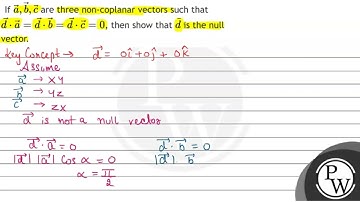 If a⃗, b⃗, c⃗ are three non-coplanar vectors such that
d⃗ · a⃗ = d⃗ · b⃗ = d⃗ · c⃗ = 0, then show that d⃗ is the null
vector.
Key Concept → d⃗ = 0î + 0ĵ + 0k̂
Assume
a⃗ → XY
b⃗ → YZ
c⃗ → ZX
d⃗ is not a null vector
d⃗ · a⃗ = 0 d⃗ · b⃗ = 0
|d⃗| |a⃗| Cos α = 0 |d⃗| b⃗
α = π/2
P
W